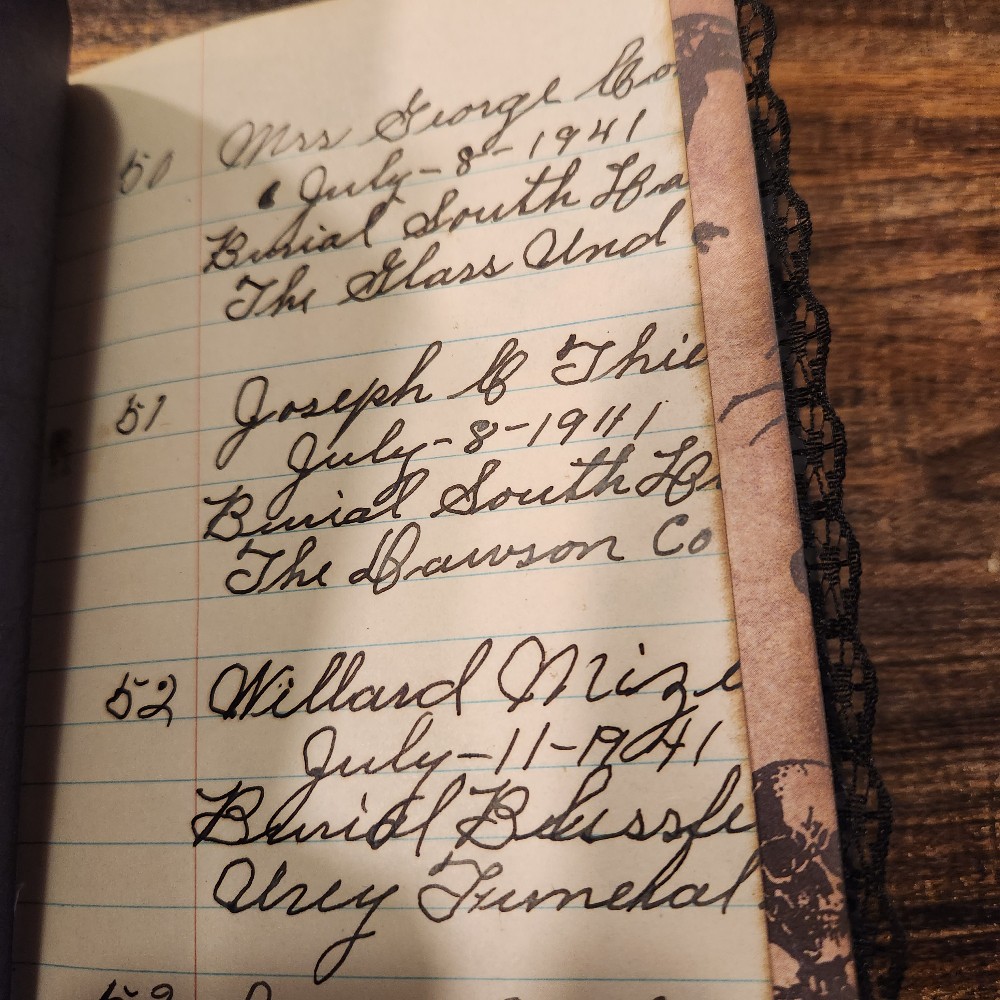 50 Mrs George Co
July-8-1941
Burial South Ha
The Glass Und
51 Joseph C Thie
July-8-1941
Burial South Ha
The Dawson Co
52 Willard Mize
July-11-1941
Burial
Urey Funehal
53